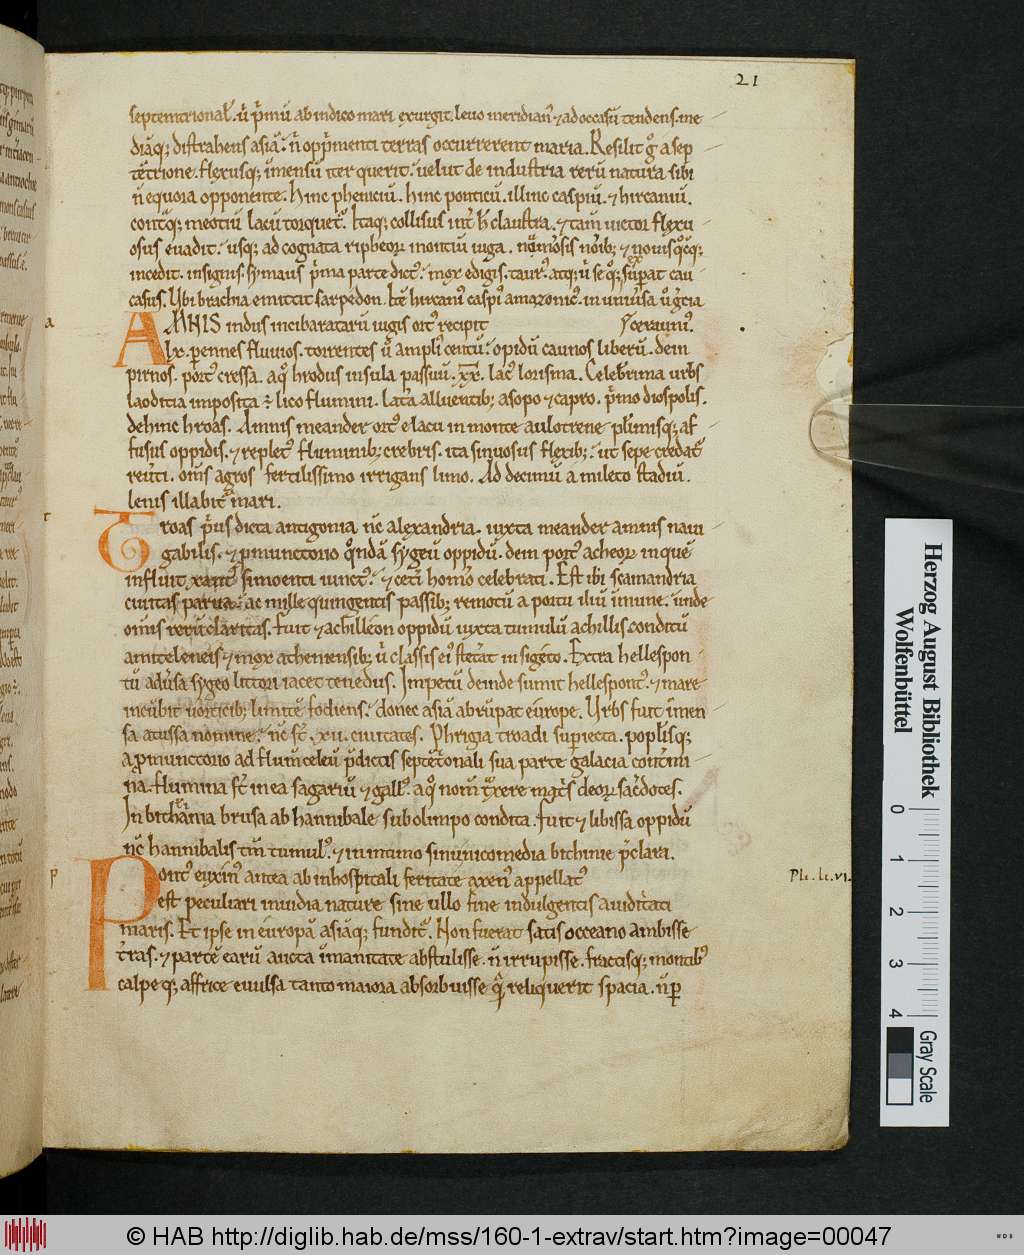 21
septemtrional̄. ut̄ p̄mū ab indico mari exurgit. leuo meridian᷒ ⁊ ad occasū tendens. me
diāq; distrahens asiā. n̄ opp̄menti terras occurrerent maria. Resilit ḡ a sep
tētrione. flexusq; īmensū iter querit. uelut de industria rerū natura sibi
n̄ equora opponente. Hinc pheniciū. hinc ponticū. illinc caspiū. ⁊ hircaniū.
cont̄q; meotiū lacū torquet᷒. Itaq; collisus int̄ h̄ claustra. ⁊ tam̄ uictor flexu
osus euadit. usq; ad cognata ripheoꝝ montiū iuga.
incedit. insignis.
casus. Ubi brachia emittit sarpedon. Itē hircan᷒ caspi᷒ amazonic᷒. in uniūsa
AMNIS indus in cibaratarū iugis ort᷒ recipit ceraunī᷒.
pennes fluuios. torrentes ū ampli᷒ centū. opidū caunos liberū. dein
pirnos. port᷒ cressa. aq̊ hrodus insula passuū. xx. loc᷒ lorisma. Celeb̄rima urbs
laoditia imposita ē lico flumini. lat̄a alluentib; asopo ⁊ capro. p̄mo diospolis.
dehinc hroas. Amnis meander ort᷒ e lacu in monte aulocrene plīmisq; af
fusus oppidis. ⁊ replet᷒ fluminib; crebris. ita sinuosus flexib;. ut sepe credat᷒
reūti. om̄s agros fertilissimo irrigans limo. Ad decimū a mileto stadiū.
lenis illabit᷒ mari.
Troas p̄us dicta antigonia nc̄ alexandria. iuxta meander amnis naui
gabilis. ⁊ pmunctorio q̊ndā sygeū oppidū. dein port᷒ acheoꝝ in quē
influit xant᷒ simoenti iunct᷒. ⁊ cet̄i homo celebrati. Est ibi scamandria
ciuitas parua. ac mille quingentis passib; remotū a portu iliū inmune. unde
om̄is rerū claritas. Fuit ⁊ achilleon oppidū iuxta tumulū achillis conditū
a miteleneis ⁊ mox atheniensib; ū classis ei᷒ stet̄at in sigeto. Extra hellespon
tū adūsa sygeo littori iacet tenedus. Impetū deinde sumit hellespont᷒. ⁊ mare
incūbit uorticib; limitē fodiens. donec asiā abrūpat europe. Urbs fuit īmen
sa atussa nomine. nc̄ st̄ .xii. ciuitates. Phrigia troadi sup̄iecta. poplisq;
a pmunctorio ad flum̄ celeū p̄dictis septēt̄onali sua parte galacia cont̄mi
na. Flumina st̄ in ea sagariū ⁊ gall᷒. aq̊ nom̄ t̄xere matris deoꝝ sac̄dotes.
In bithania brusa ab hannibale sub olimpo condita. fuit ⁊ libissa oppidū
nc̄ hannibalis tm̄ tumul᷒. ⁊ in intimo sinu nicomedia bithinie p̄clara.
Pont᷒ euxin᷒ antea ab inhospitali feritate axen᷒ appellat᷒
est peculiari inuidia nature sine ullo fine indulgentis auiditati
maris. Et ipse in europā asiāq; fundit᷒. Non fuerat satis occeano ambisse
t̄ras. ⁊ partē earū aucta īmanitate abstulisse. n̄ irrupisse. fractisq; montib᷒
calpe q; affrice euulsa tanto maiora absorbuisse q̄ reliquerit spacia. n̄ p
Pli. li. vi.
Herzog August Bibliothek
Wolfenbüttel
0 1 2 3 4
Gray Scale
© HAB http://diglib.hab.de/mss/160-1-extrav/start.htm?image=00047